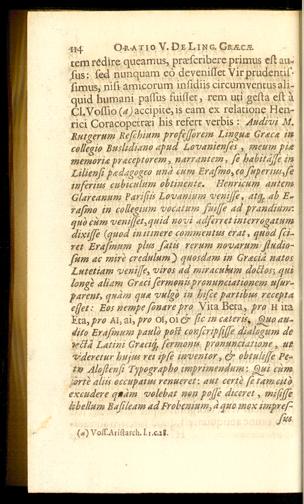 114 ORATIO V. DE LING. GRÆCÆ
tem redire queamus, præscribere primus est au-
sus: sed nunquam eò devenisset Vir prudentis-
simus, nisi amicorum insidiis circumventus ali-
quid humani passus fuisset, rem uti gesta est à
Cl. Vossio (a) accipite, is eam ex relatione Hen-
rici Coracopetræi his refert verbis: Audivi M.
Rutgerum Reschium professorem Linguæ Græcæ in
collegio Buslidiano apud Lovanienses, meum piæ
memoriæ præceptorem, narrantem, se habitâsse in
Liliensi pædagogeo unà cum Erasmo, eo superius, se
inferius cubiculum obtinente. Henricum autem
Glareanum Parisiis Lovanium venisse, atq; ab E-
rasmo in collegium vocatum fuisse ad prandium:
quò cùm venisset, quid novi adferret interrogatum
dixisse (quod in itinere commentus erat, quòd sci-
ret Erasmum plus satis rerum novarum studio-
sum ac mirè credulum) quosdam in Græcia natos
Lutetiam venisse, viros ad miraculum doctos; qui
longè aliam Græci sermonis pronunciationem usur-
parent, quàm quæ vulgò in hisce partibus recepta
esset: Eos nempe sonare pro Vita Beta, pro H ita
Eta, pro AI, ai, pro OI, oi & sic in cæteris, Quo au-
dito Erasmum paulò pòst conscripsisse dialogum de
rectâ Latini Græciq; sermonis pronunciatione, ut
videretur hujus rei ipse inventor, & obtulisse Pe-
tro Alostensi Typographo imprimendum: Qui cùm
fortè aliis occupatus renueret: aut certè se tam citò
excudere quàm volebat non posse diceret, misisse
libellum Basileam ad Frobenium, à quo mox impres-
sus
(a) Voss. Aristarch. l. 1. c. 28.